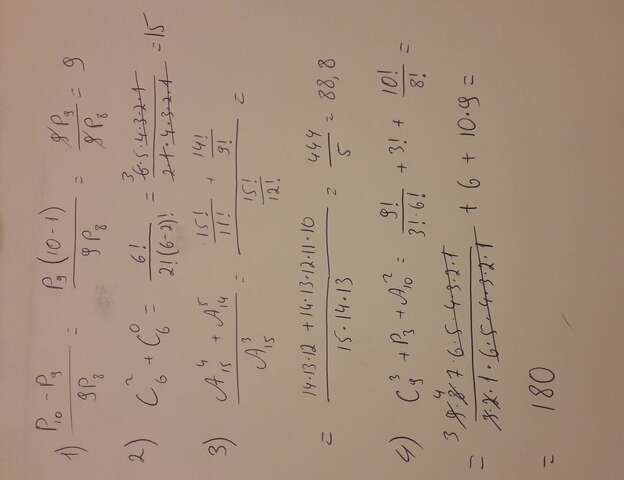 1) (P₁₀ - P₉)/(9P₈) = P₉(10-1)/(9P₈) = 9P₉/9P₈ = 9
2) C₆² + C₆⁰ = 6!/(2!(6-2)!) = 6·5·4·3·2·1/(2·1·4·3·2·1) = 15
3) (A₁₅⁴ + A₁₄⁵)/A₁₅³ = (15!/11! + 14!/9!)/(15!/12!) =
= (14·13·12 + 14·13·12·11·10)/(15·14·13) = 444/5 = 88,8
4) C₉³ + P₃ + A₁₀² = 9!/(3!·6!) + 3! + 10!/8! =
= 3 4 9·8·7·6·5·4·3·2·1/(3·2·1·6·5·4·3·2·1) + 6 + 10·9 =
= 180